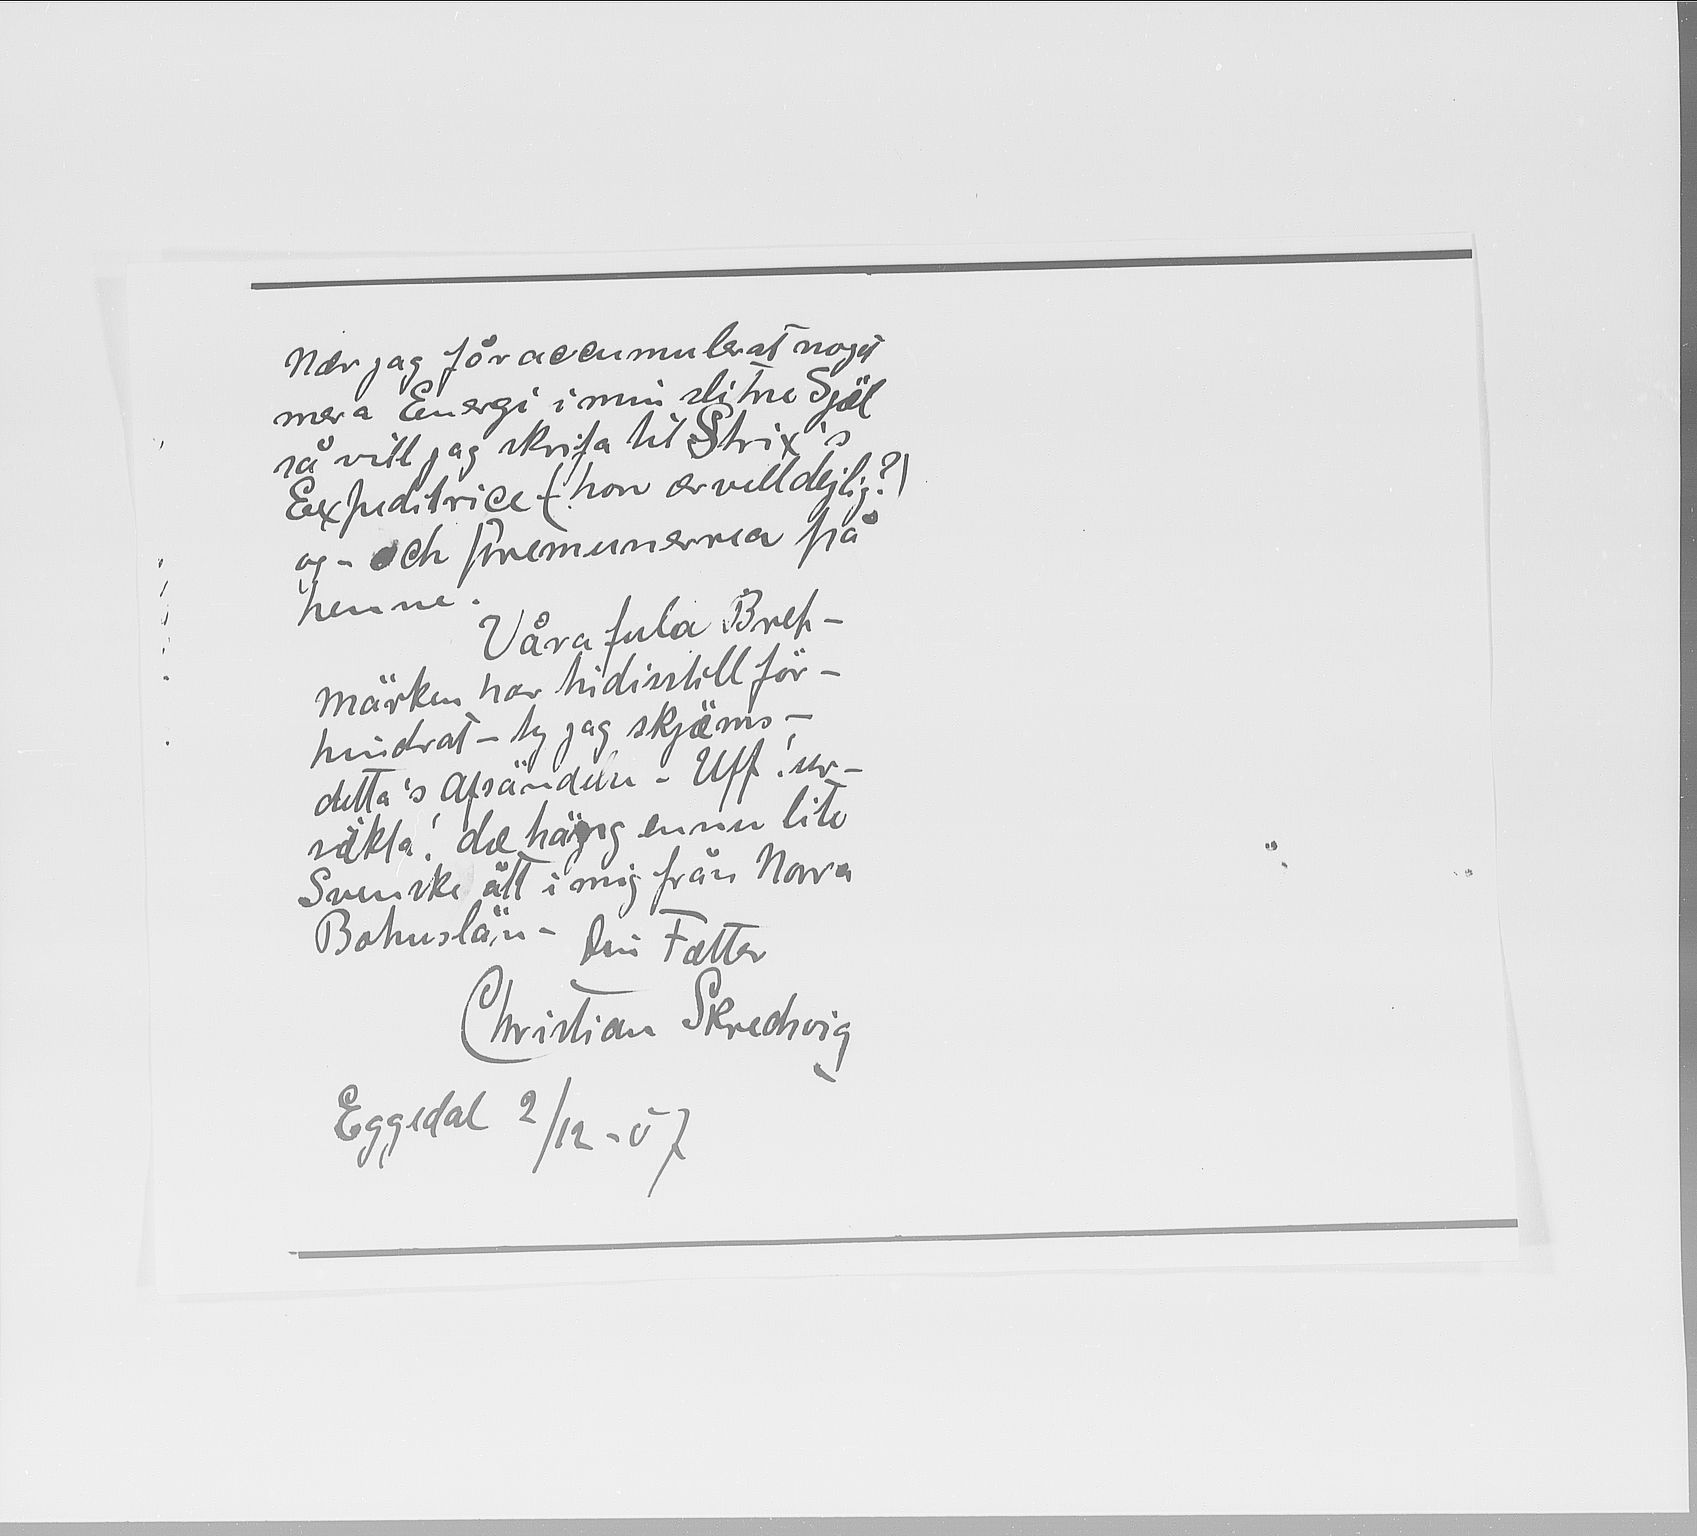 Nær jag får accumulerat noget
mera Energi i min slitne Själ
så vill jag skrifa til Strix's
Expeditrice (hon ær vell dejlig?)
og - och premunerrea på
henne.
Våra fula Bref-
märken har hidintill för-
hindrat - ty jag skjäms -
detta's Afsändelse - Uff! ur-
säkta! dæ häng ennu lite
Svenske ått i mig från Norra
Bohuslän - Din Fætter
Christian Skredsvig
Eggedal 2/12 - 07